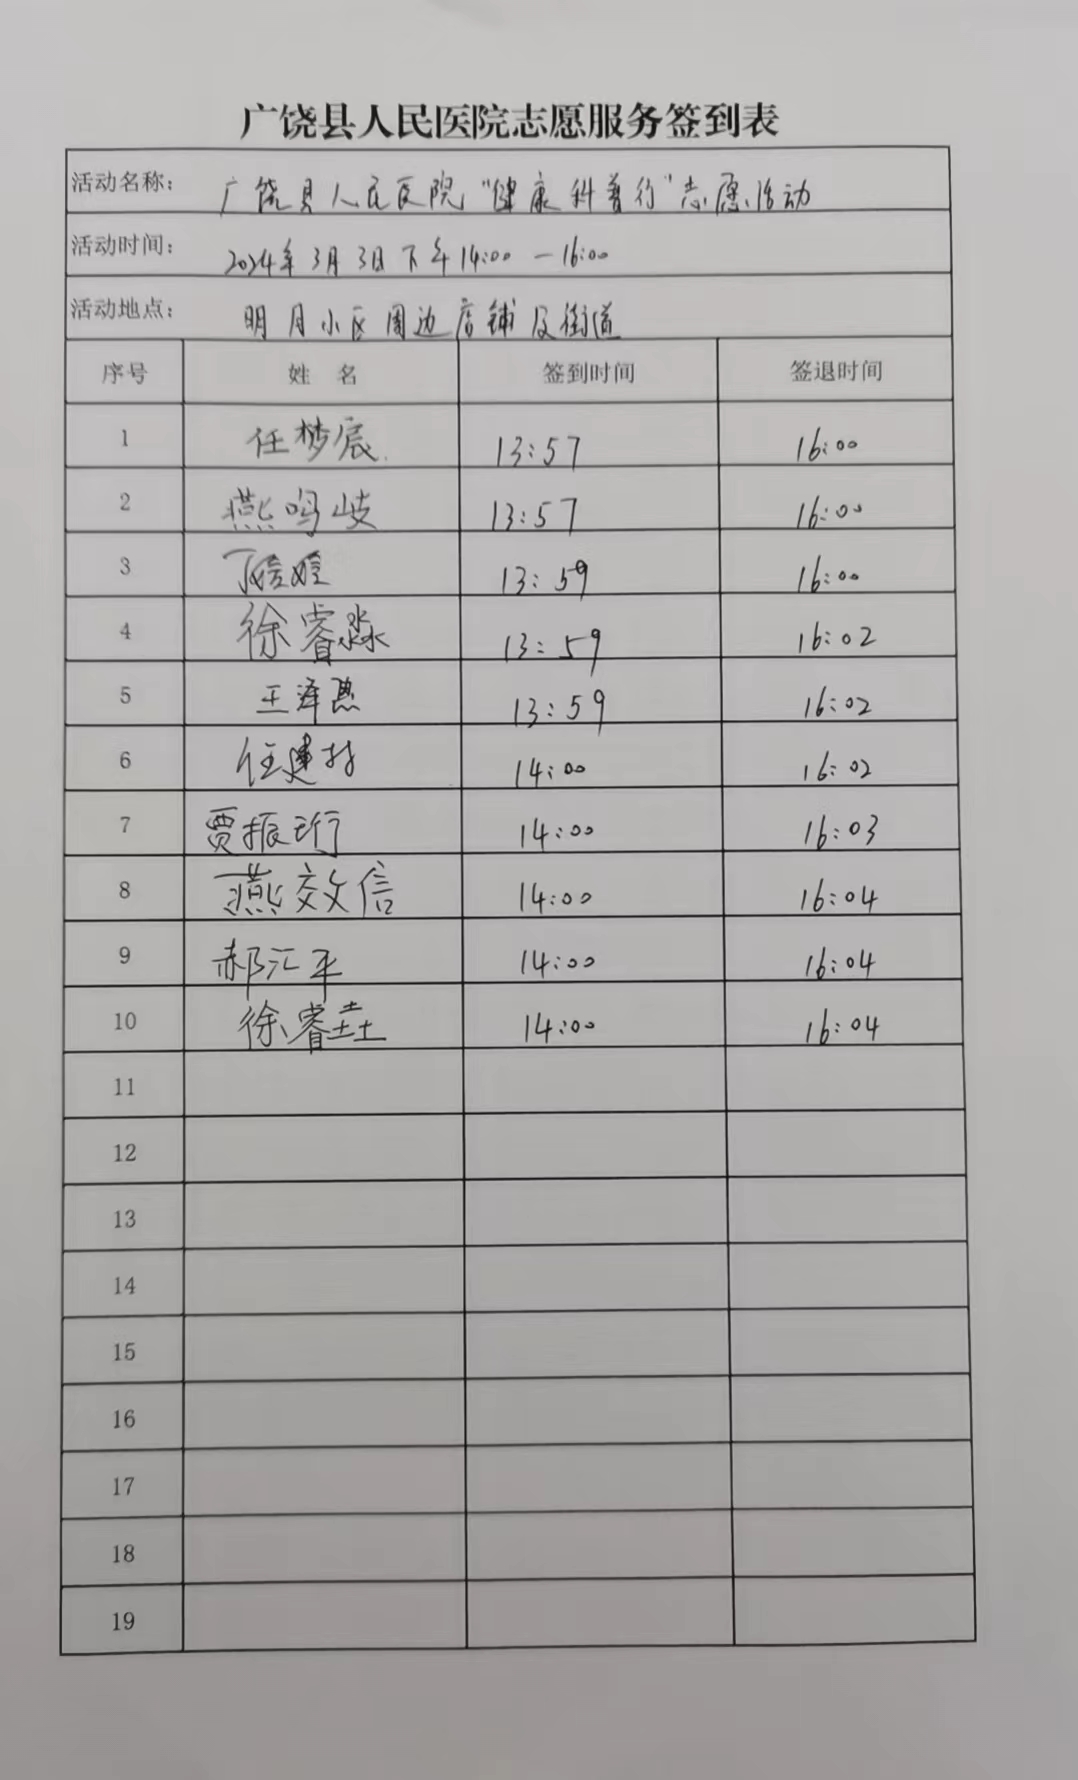 广饶县人民医院志愿服务签到表
活动名称： 广饶县人民医院"健康科普行"志愿活动
活动时间： 2024年3月3日下午14:00一16:00
活动地点： 明月小区周边店铺及街道
序号 姓 名 签到时间 签退时间
1 任梦宸 13:57 16:00
2 燕鸣岐 13:57 16:00
3 13:59 16:00
4 徐睿淼 13:59 16:02
5 王泽 13:59 16:02
6 任建村 14:00 16:02
7 贾振珩 14:00 16:03
8 燕效信 14:00 16:04
9 郝汇平 14:00 16:04
10 徐睿垚 14:00 16:04
11
12
13
14
15
16
17
18
19